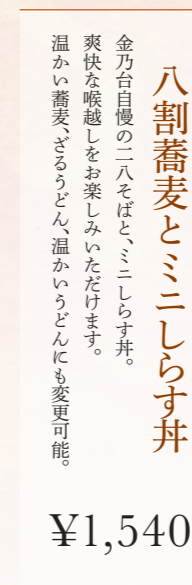 八割蕎麦とミニしらす丼
金乃台自慢の二八そばと、ミニしらす丼。
爽快な喉越しをお楽しみいただけます。
温かい蕎麦、ざるうどん、温かいうどんにも変更可能。
¥1,540